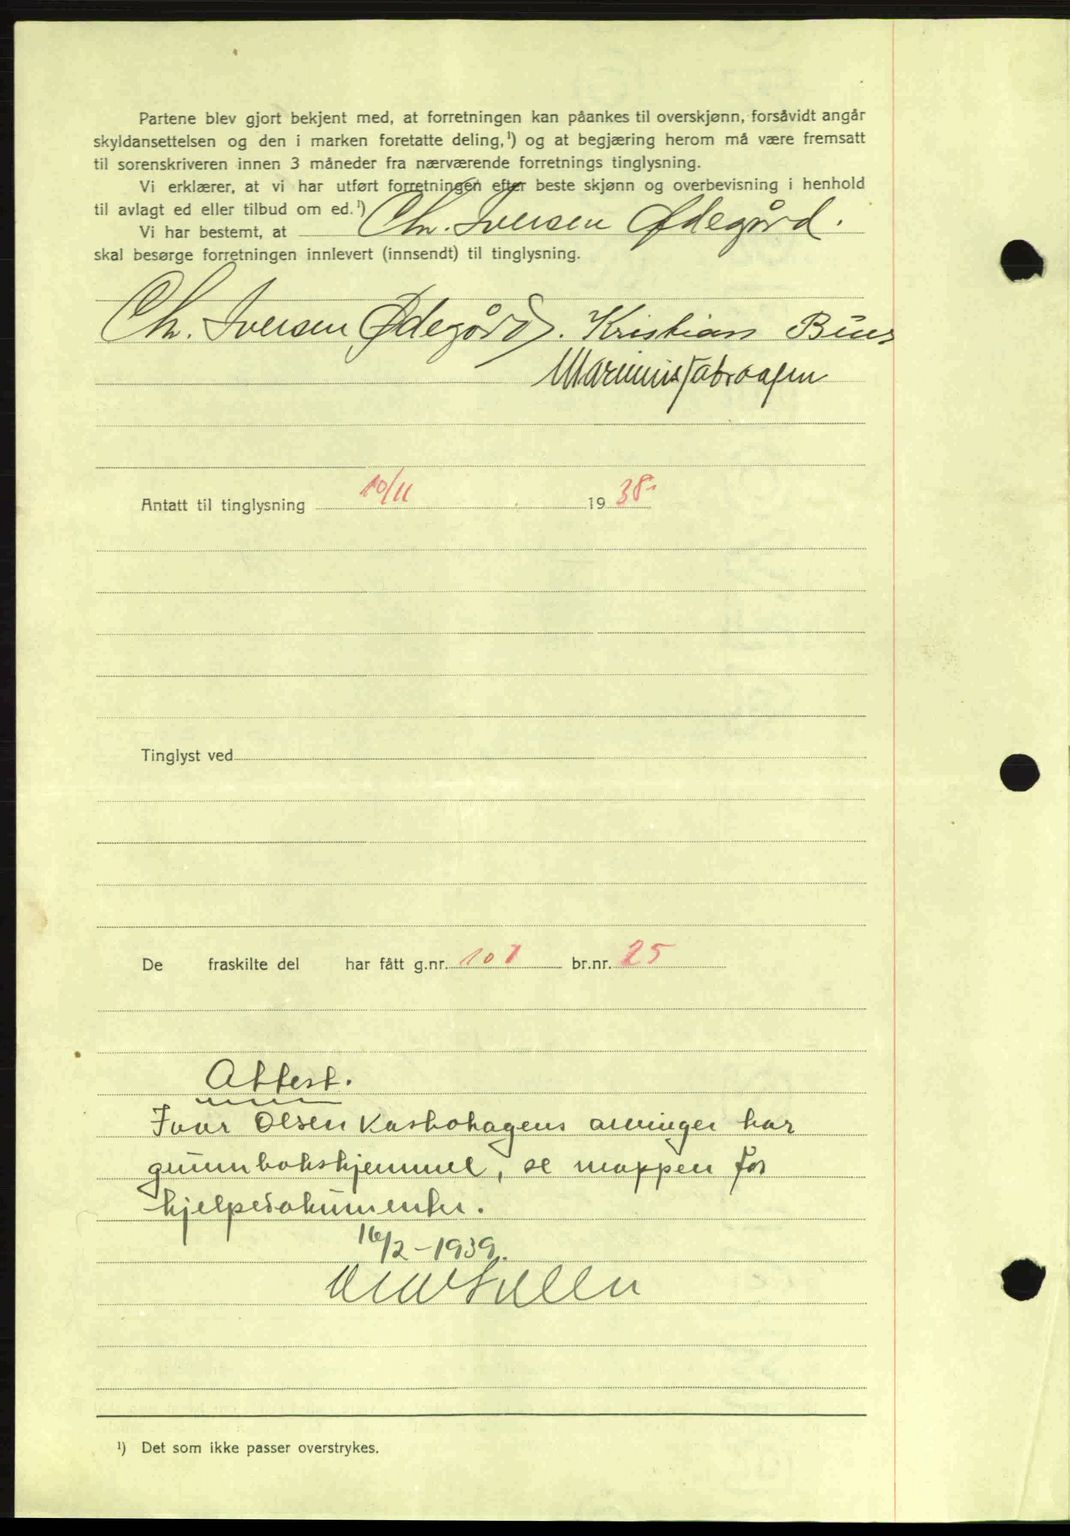 Partene blev gjort bekjent med, at forretningen kan påankes til overskjønn, forsåvidt angår
skyldansettelsen og den i marken foretatte deling,¹) og at begjæring herom må være fremsatt
til sorenskriveren innen 3 måneder fra nærværende forretnings tinglysning.
Vi erklærer, at vi har utført forretningen efter beste skjønn og overbevisning i henhold
til avlagt ed eller tilbud om ed.¹)
Vi har bestemt, at Ch. Iversen Ødegård.
skal besørge forretningen innlevert (innsendt) til tinglysning.
Ch. Iversen Ødegård. Kristian
Antatt til tinglysning 10/11 1938.
Tinglyst ved
De fraskilte del har fått g.nr. 107 br.nr. 25
Attest.
Ivar Olsen Kasbohagens arvinger har
grunnbokshjemmel, se mappen for
hjelpedokumenter.
16/2-1939.
¹) Det som ikke passer overstrykes.